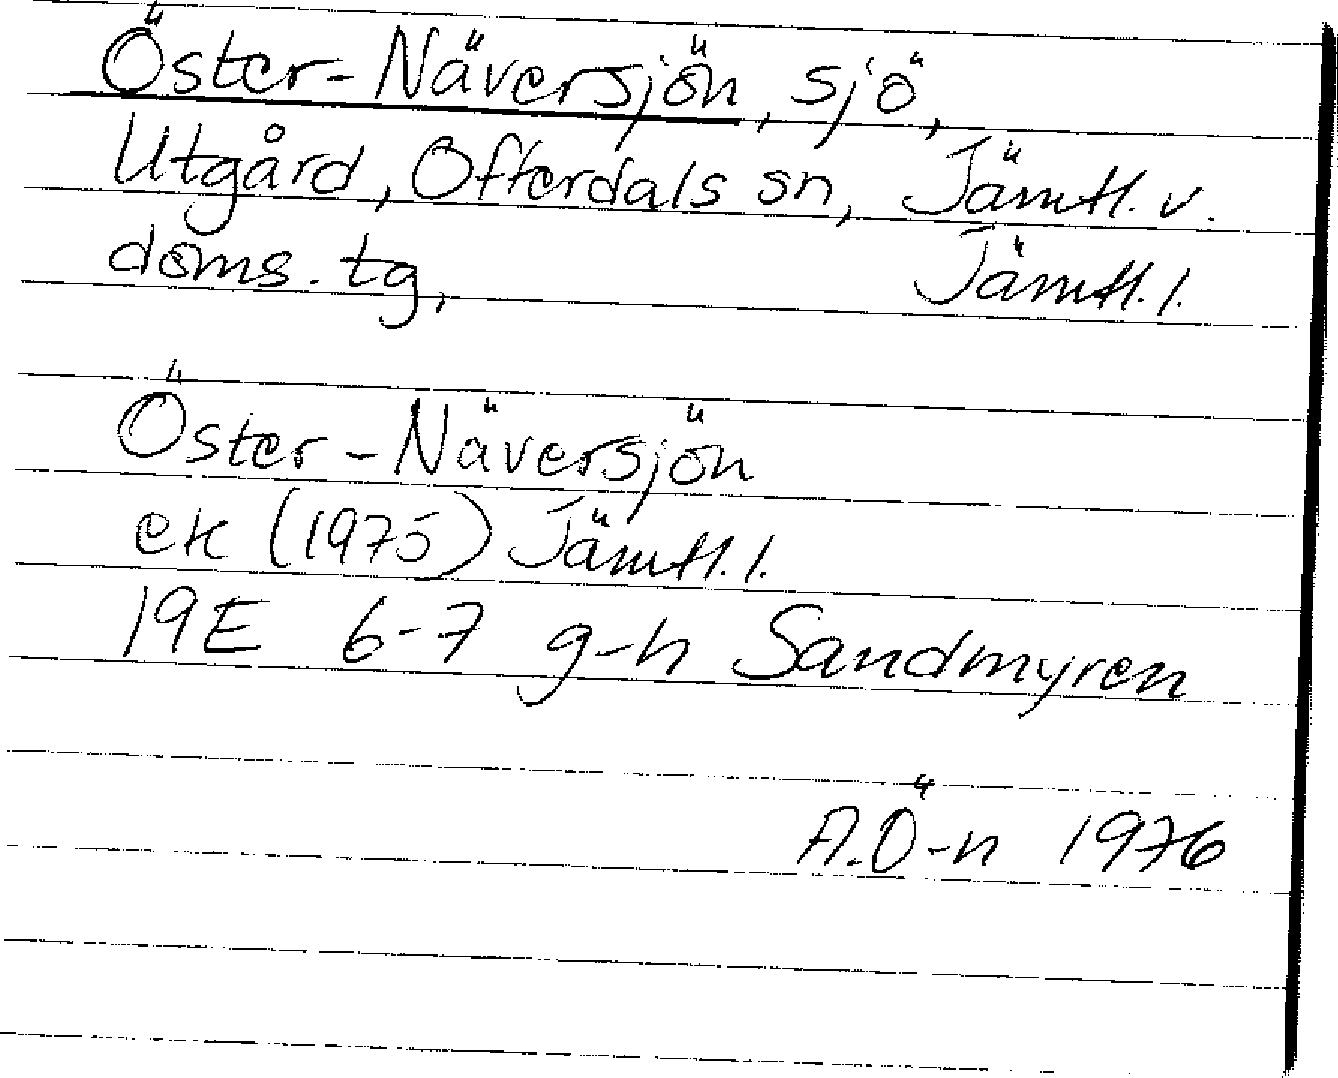 Öster-Näversjön, sjö,
Utgård, Offerdals sn, Jämtl. v.
doms. tg, Jämtl. l.
Öster-Näversjön
ek (1975) Jämtl. l.
19E 6-7 g-h Sandmyren
A.Ö-n 1976